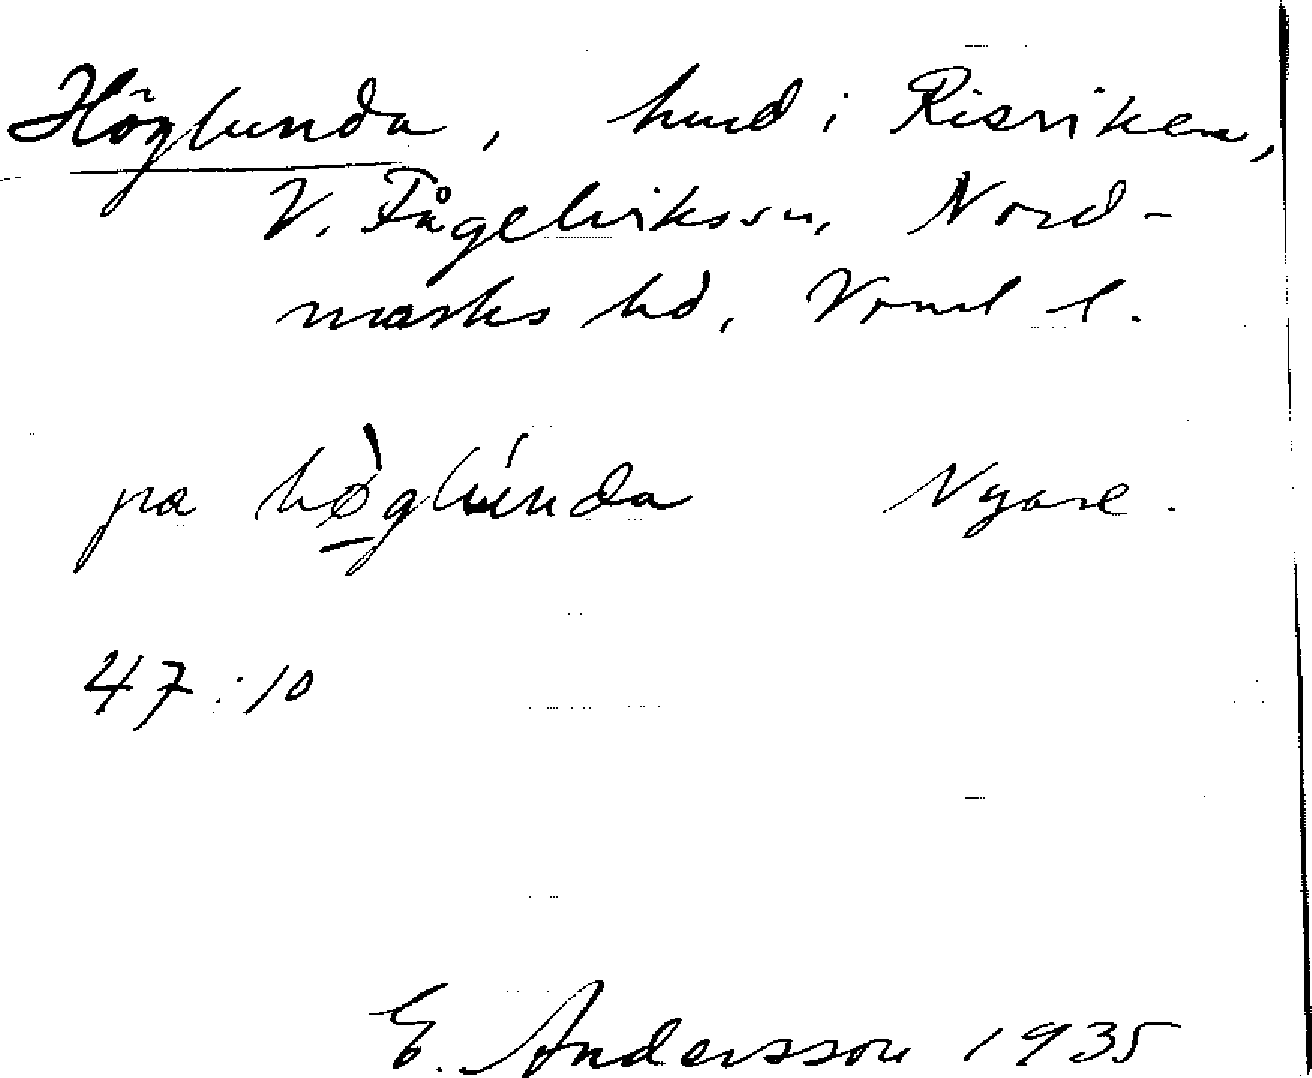 Höglunda, hmd i Risviken,
V. Fågelvikssn, Nord-
marks hd, Vrml l.
pa hø̀glúnda Nyare.
47:10
E. Andersson 1935